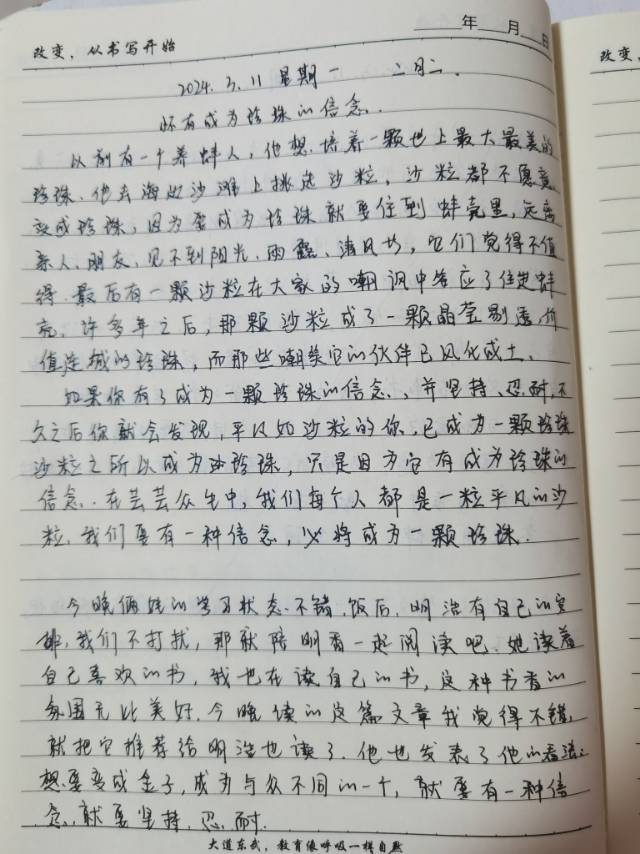 改变，从书写开始
年 月 日
改变，
2024. 3. 11 星期一 二月二.
怀有成为珍珠的信念.
以前有一个养蚌人，他想培养一颗世上最大最美的
珍珠. 他去海边沙滩上挑选沙粒，沙粒都不愿意
变成珍珠，因为要成为珍珠就要住到蚌壳里，远离
亲人、朋友，见不到阳光、雨露、清风等，它们觉得不值
得. 最后有一颗沙粒在大家的嘲讽中答应了住进蚌
壳. 许多年之后，那颗沙粒成了一颗晶莹剔透、价
值连城的珍珠，而那些嘲笑它的伙伴已风化成土.
如果你有了成为一颗珍珠的信念、并坚持、忍耐，不
久之后你就会发现，平凡如沙粒的你，已成为一颗珍珠
沙粒之所以成为珍珠，只是因为它有成为珍珠的
信念. 在芸芸众生中，我们每个人都是一粒平凡的沙
粒，我们要有一种信念，必将成为一颗珍珠.
今晚俩娃的学习状态不错，饭后，明浩有自己的安
排，我们不打扰，那就陪明看一起阅读吧. 她读着
自己喜欢的书，我也在读自己的书，这种书香的
氛围无比美好. 今晚读的这篇文章我觉得不错，
就把它推荐给明浩也读了. 他也发表了他的看法：
想要变成金子，成为与众不同的一个，就要有一种信
念，就要坚持、忍耐.
大道东武，教育像呼吸一样自然